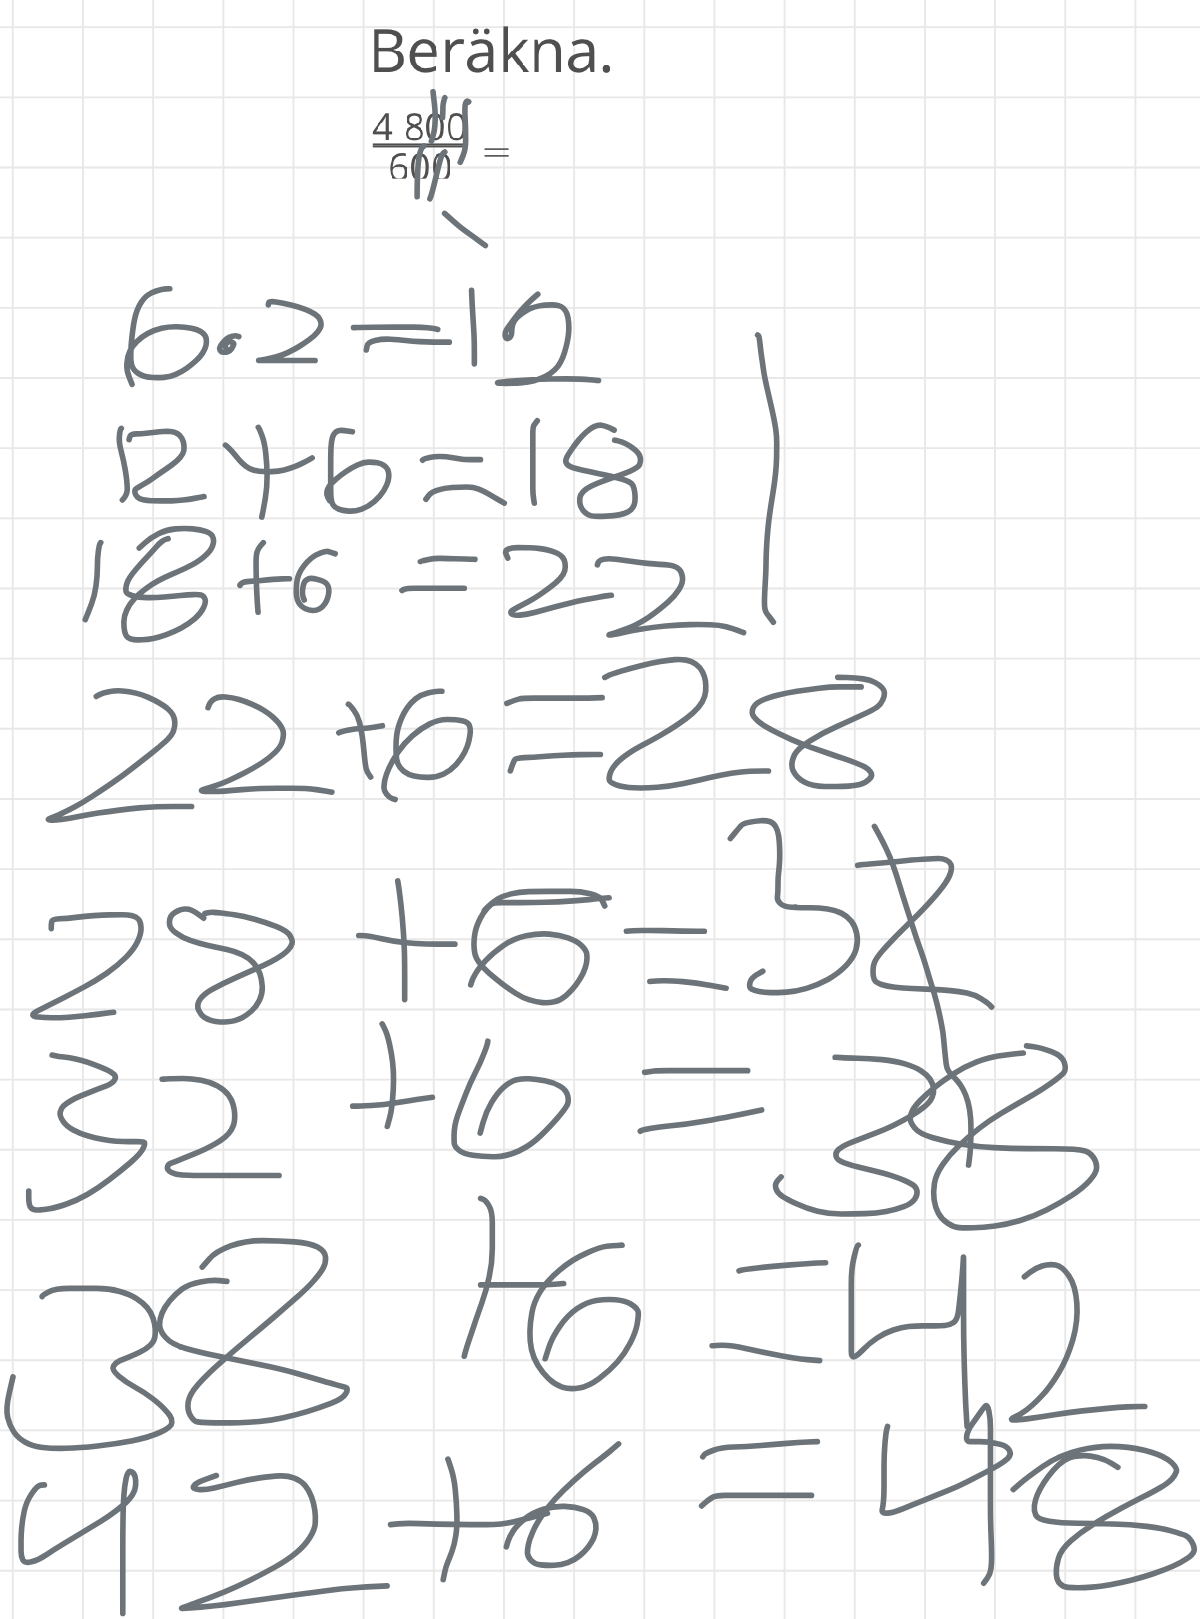 Beräkna.
4 800
600 =
6·2=12
12+6=18
18+6=22
22+6=28
28+6=32
32+6=38
38+6=42
42+6=48